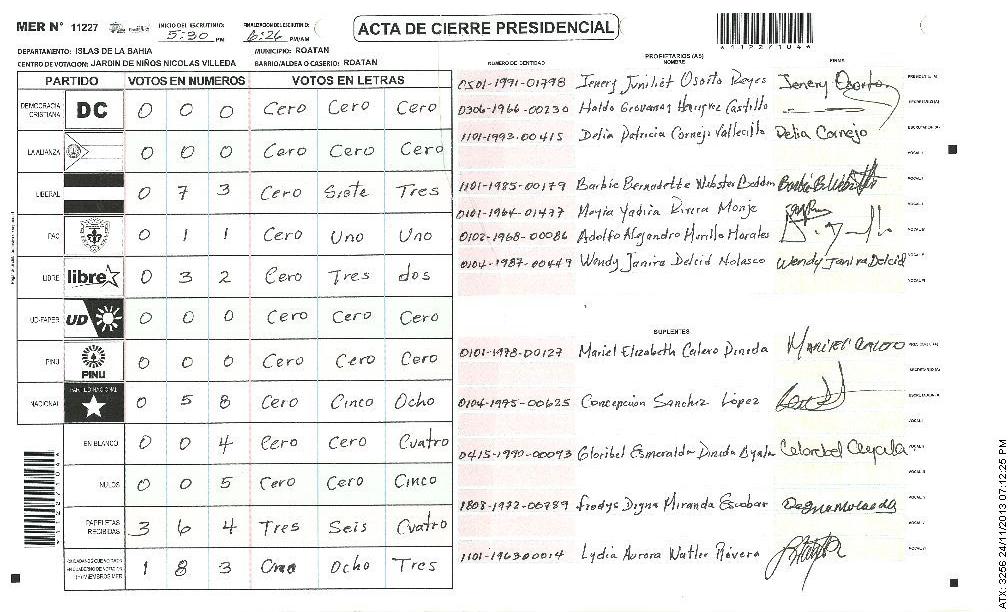 MER N° 11227
INICIO DEL ESCRUTINIO: 5:30 PM
FINALIZACION DEL ESCRUTINIO: 6:26 PM/AM
ACTA DE CIERRE PRESIDENCIAL
DEPARTAMENTO: ISLAS DE LA BAHIA MUNICIPIO: ROATAN
CENTRO DE VOTACION: JARDIN DE NIÑOS NICOLAS VILLEDA BARRIO/ALDEA O CASERIO: ROATAN
PARTIDO VOTOS EN NUMEROS VOTOS EN LETRAS
DEMOCRACIA CRISTIANA DC 0 0 0 Cero Cero Cero
LA ALIANZA 0 0 0 Cero Cero Cero
LIBERAL 0 7 3 Cero Siete Tres
PAC 0 1 1 Cero Uno Uno
LIBRE libre 0 3 2 Cero Tres dos
UD-FAPER UD 0 0 0 Cero Cero Cero
PINU PINU 0 0 0 Cero Cero Cero
NACIONAL PARTIDO NACIONAL 0 5 8 Cero Cinco Ocho
EN BLANCO 0 0 4 Cero Cero Cuatro
NULOS 0 0 5 Cero Cero Cinco
PAPELETAS RECIBIDAS 3 6 4 Tres Seis Cuatro
1 8 3 Ocho Tres
NUMERO DE IDENTIDAD PROPIETARIOS (AS) FIRMA
0501-1991-01798 Jenery Juniliet Osorto Reyes Jenery Osorto
0306-1966-00230 Castillo
1101-1993-00415 Delia Patricia Cornejo Vallecillo Delia Cornejo
1101-1985-00179 Barbie Bernadette Webster
0101-1964-01477 Mayra Yadira Rivera Monje
0102-1968-00086 Adolfo Alejandro Murillo Morales
0104-1987-00449 Wendy Janira Delcid Nolasco Wendy Janira Delcid
SUPLENTES
0101-1978-00127 Mariel Elizabeth Calero Pineda Mariel Calero
0104-1995-00625 Concepcion Sanchez López
0415-1990-00093 Gloribel Esmeralda Pineda Ayala
1808-1972-00789 Digna Miranda Escobar
1101-1963-00014 Lydia Aurora Watler Rivera
ATX: 3256 24/11/2013 07:12:25 PM